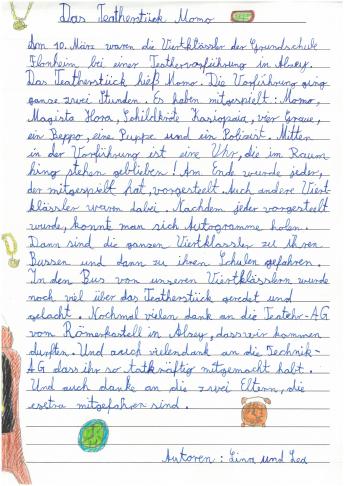 Das Teatherstück Momo
Am 10. März waren die Viertklässler der Grundschule
Flonheim bei einer Teathervorführung in Alzey.
Das Teatherstück hieß Momo. Die Vorführung ging
ganze zwei Stunden. Es haben mitgespielt: Momo,
Magista Hora, Schildkröte Kassiopaia, vier Graue,
ein Beppo, eine Puppe und ein Polizist. Mitten
in der Vorführung ist eine Uhr, die im Raum
hing stehen geblieben! Am Ende wurde jeder,
der mitgespielt hat, vorgesteelt. Auch andere Viert
klässler warn dabei. Nachdem jeder vorgesteelt
wurde, konnt man sich Autogramme holen.
Dann sind die ganzen Viertklassler zu ihren
Bussen und dann zu ihren Schulen gefahren.
In den Bus von unseren Viertklässlern wurde
noch viel über das Teatherstück geredet und
gelacht. Nochmal vielen dank an die Teatehr-AG
vom Römerkastell in Alzey, dass wir kommen
durften. Und auch vielendank an die Technik-
AG dass ihr so tatkräftig mitgemacht habt.
Und auch danke an die zwei Eltern, die
exetra mitgefahren sind.
Autoren: Lina und Lea